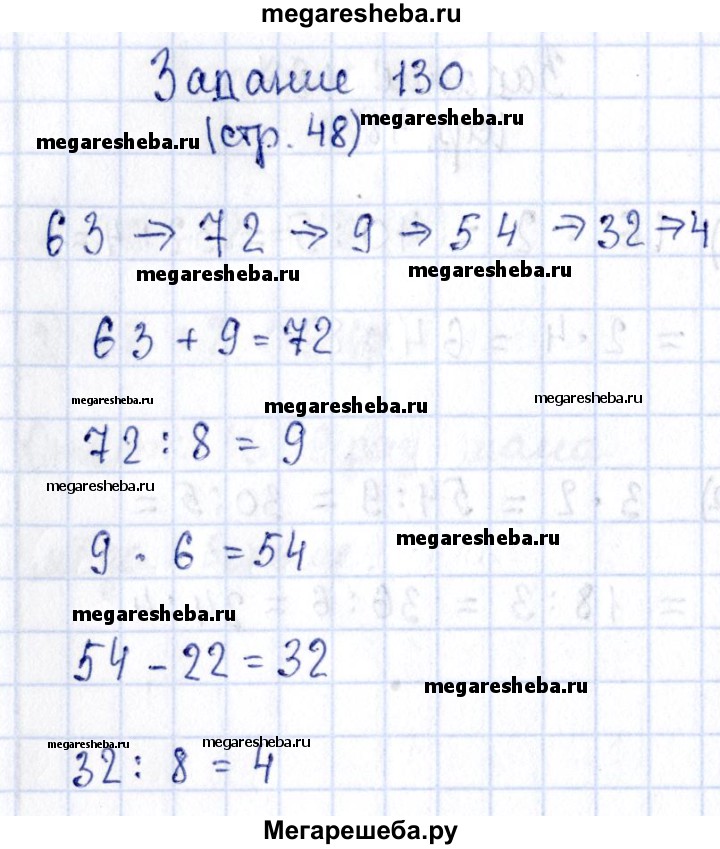 megaresheba.ru
Задание 130
megaresheba.ru
megaresheba.ru
(стр. 48)
63 → 72 → 9 → 54 → 32 → 4
megaresheba.ru
megaresheba.ru
63 + 9 = 72
megaresheba.ru
megaresheba.ru
megaresheba.ru
72 : 8 = 9
megaresheba.ru
9 · 6 = 54
megaresheba.ru
megaresheba.ru
54 - 22 = 32
megaresheba.ru
megaresheba.ru
megaresheba.ru
32 : 8 = 4
Мегарешеба.ру